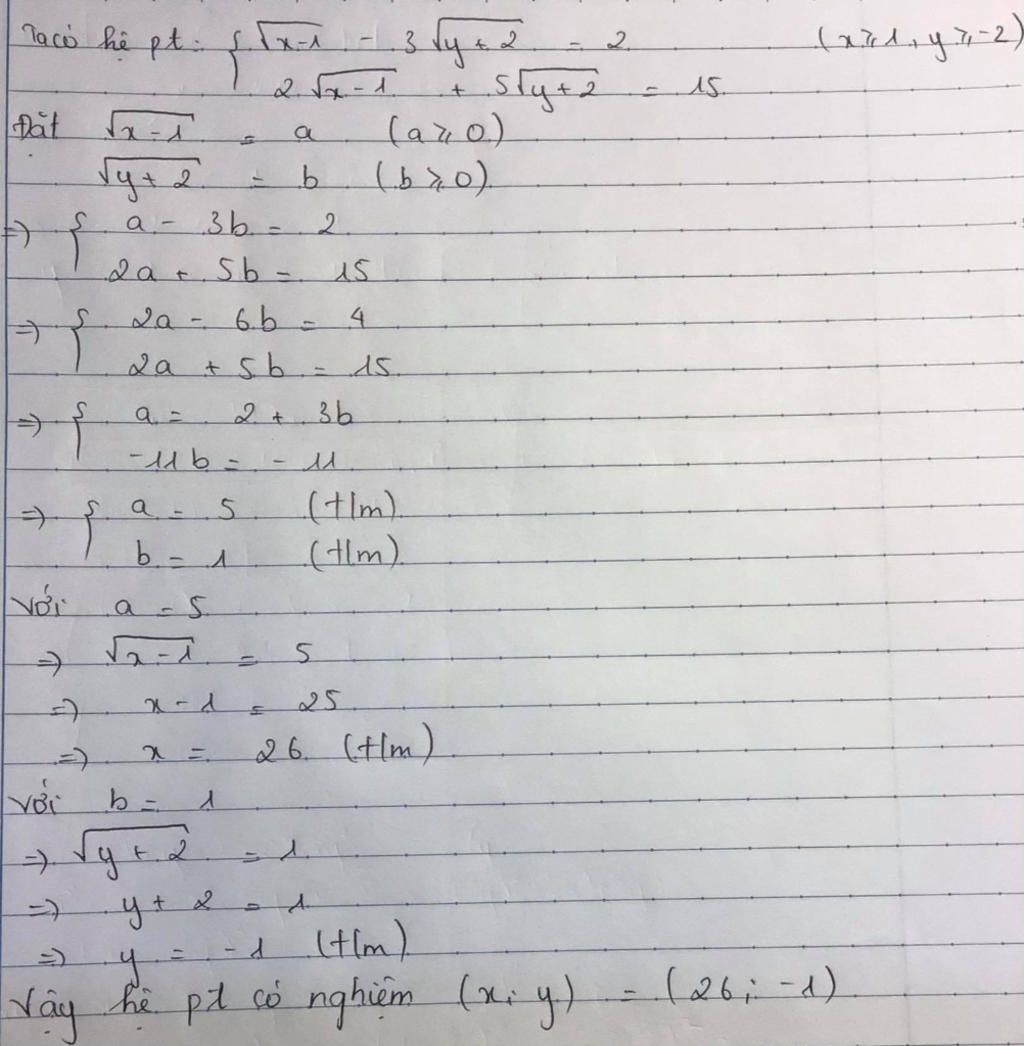 Ta có hệ pt: { √(x-1) - 3√(y+2) = 2 (x ⩾ 1, y ⩾ -2)
2√(x-1) + 5√(y+2) = 15
Đặt √(x-1) = a (a ⩾ 0)
√(y+2) = b (b ⩾ 0)
=> { a - 3b = 2
2a + 5b = 15
=> { 2a - 6b = 4
2a + 5b = 15
=> { a = 2 + 3b
-11b = -11
=> { a = 5 (t/m)
b = 1 (t/m)
Với a = 5
=> √(x-1) = 5
=> x - 1 = 25
=> x = 26 (t/m)
Với b = 1
=> √(y+2) = 1
=> y + 2 = 1
=> y = -1 (t/m)
Vậy hệ pt có nghiệm (x; y) = (26; -1)